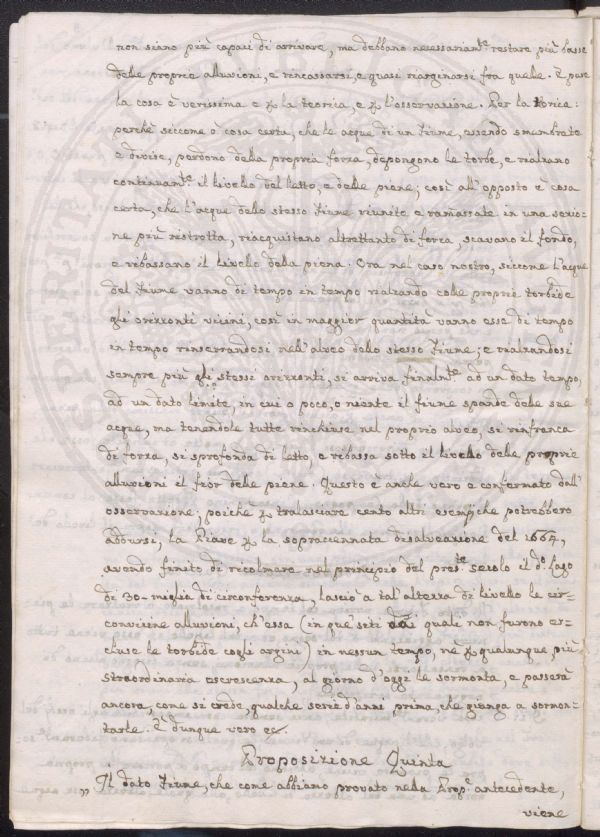 non siano più capaci di arrivare, ma debbano necessariam.te restare più basse
delle proprie alluvioni, e rincassarsi, e quasi riarginarsi fra quelle. È pure
la cosa è verissima e p la teoria, e p l'osservazione. Per la teorica:
perchè siccome è cosa certa, che le acque di un fiume, essendo smembrate
e divise, perdono della propria forza, depongono le torbe, e rialzano
continuam.te il livello del letto, e delle piene; così all'opposto è cosa
certa, che l'acque dello stesso fiume riunite e ramassate in una sezio=
ne più ristrotta, riacquistano altrettanto di forza, scavano il fondo,
e ribassano il livello della piena. Ora nel caso nostro, siccome l'acque
del fiume vanno di tempo in tempo rialzando colle proprie torbide
gli orizzonti vicini, così in maggior quantità vanno esse di tempo
in tempo rinserrandosi nell'alveo dello stesso fiume; e rialzandosi
sempre più gli stessi orizzonti, si arriva finalm.te ad un dato tempo,
ad un dato limite, in cui o poco, o niente il fiume spande delle sue
acque, ma tenendole tutte rinchiuse nel proprio alveo, si rinfranca
di forza, si sprofonda di letto, e ribassa sotto il livello delle proprie
alluvioni il fior delle piene. Questo è anche vero e confermato dall'
osservazione; poichè p tralasciare cento altri esempj che potrebbero
addursi, la Piave p la sopraccennata disalveazione del 1664,
avendo finito di ricolmare nel principio del pres.te secolo il d.o Lago
di 30 miglia di circonferenza, lasciò a tal'altezza di livello le cir=
convicine alluvioni, ch'essa (in que' siti dai quali non furono es=
cluse le torbide cogli argini) in nessun tempo, nè p qualunque più
straordinaria escrescenza, al giorno d'oggi le sormonta, e passerà
ancora, come si crede, qualche serie d'anni, prima, che giunga a sormon=
tarle. È dunque vero ec.
Proposizione Quinta
„ Il dato fiume, che come abbiamo provato nella Prop.e antecedente,
viene